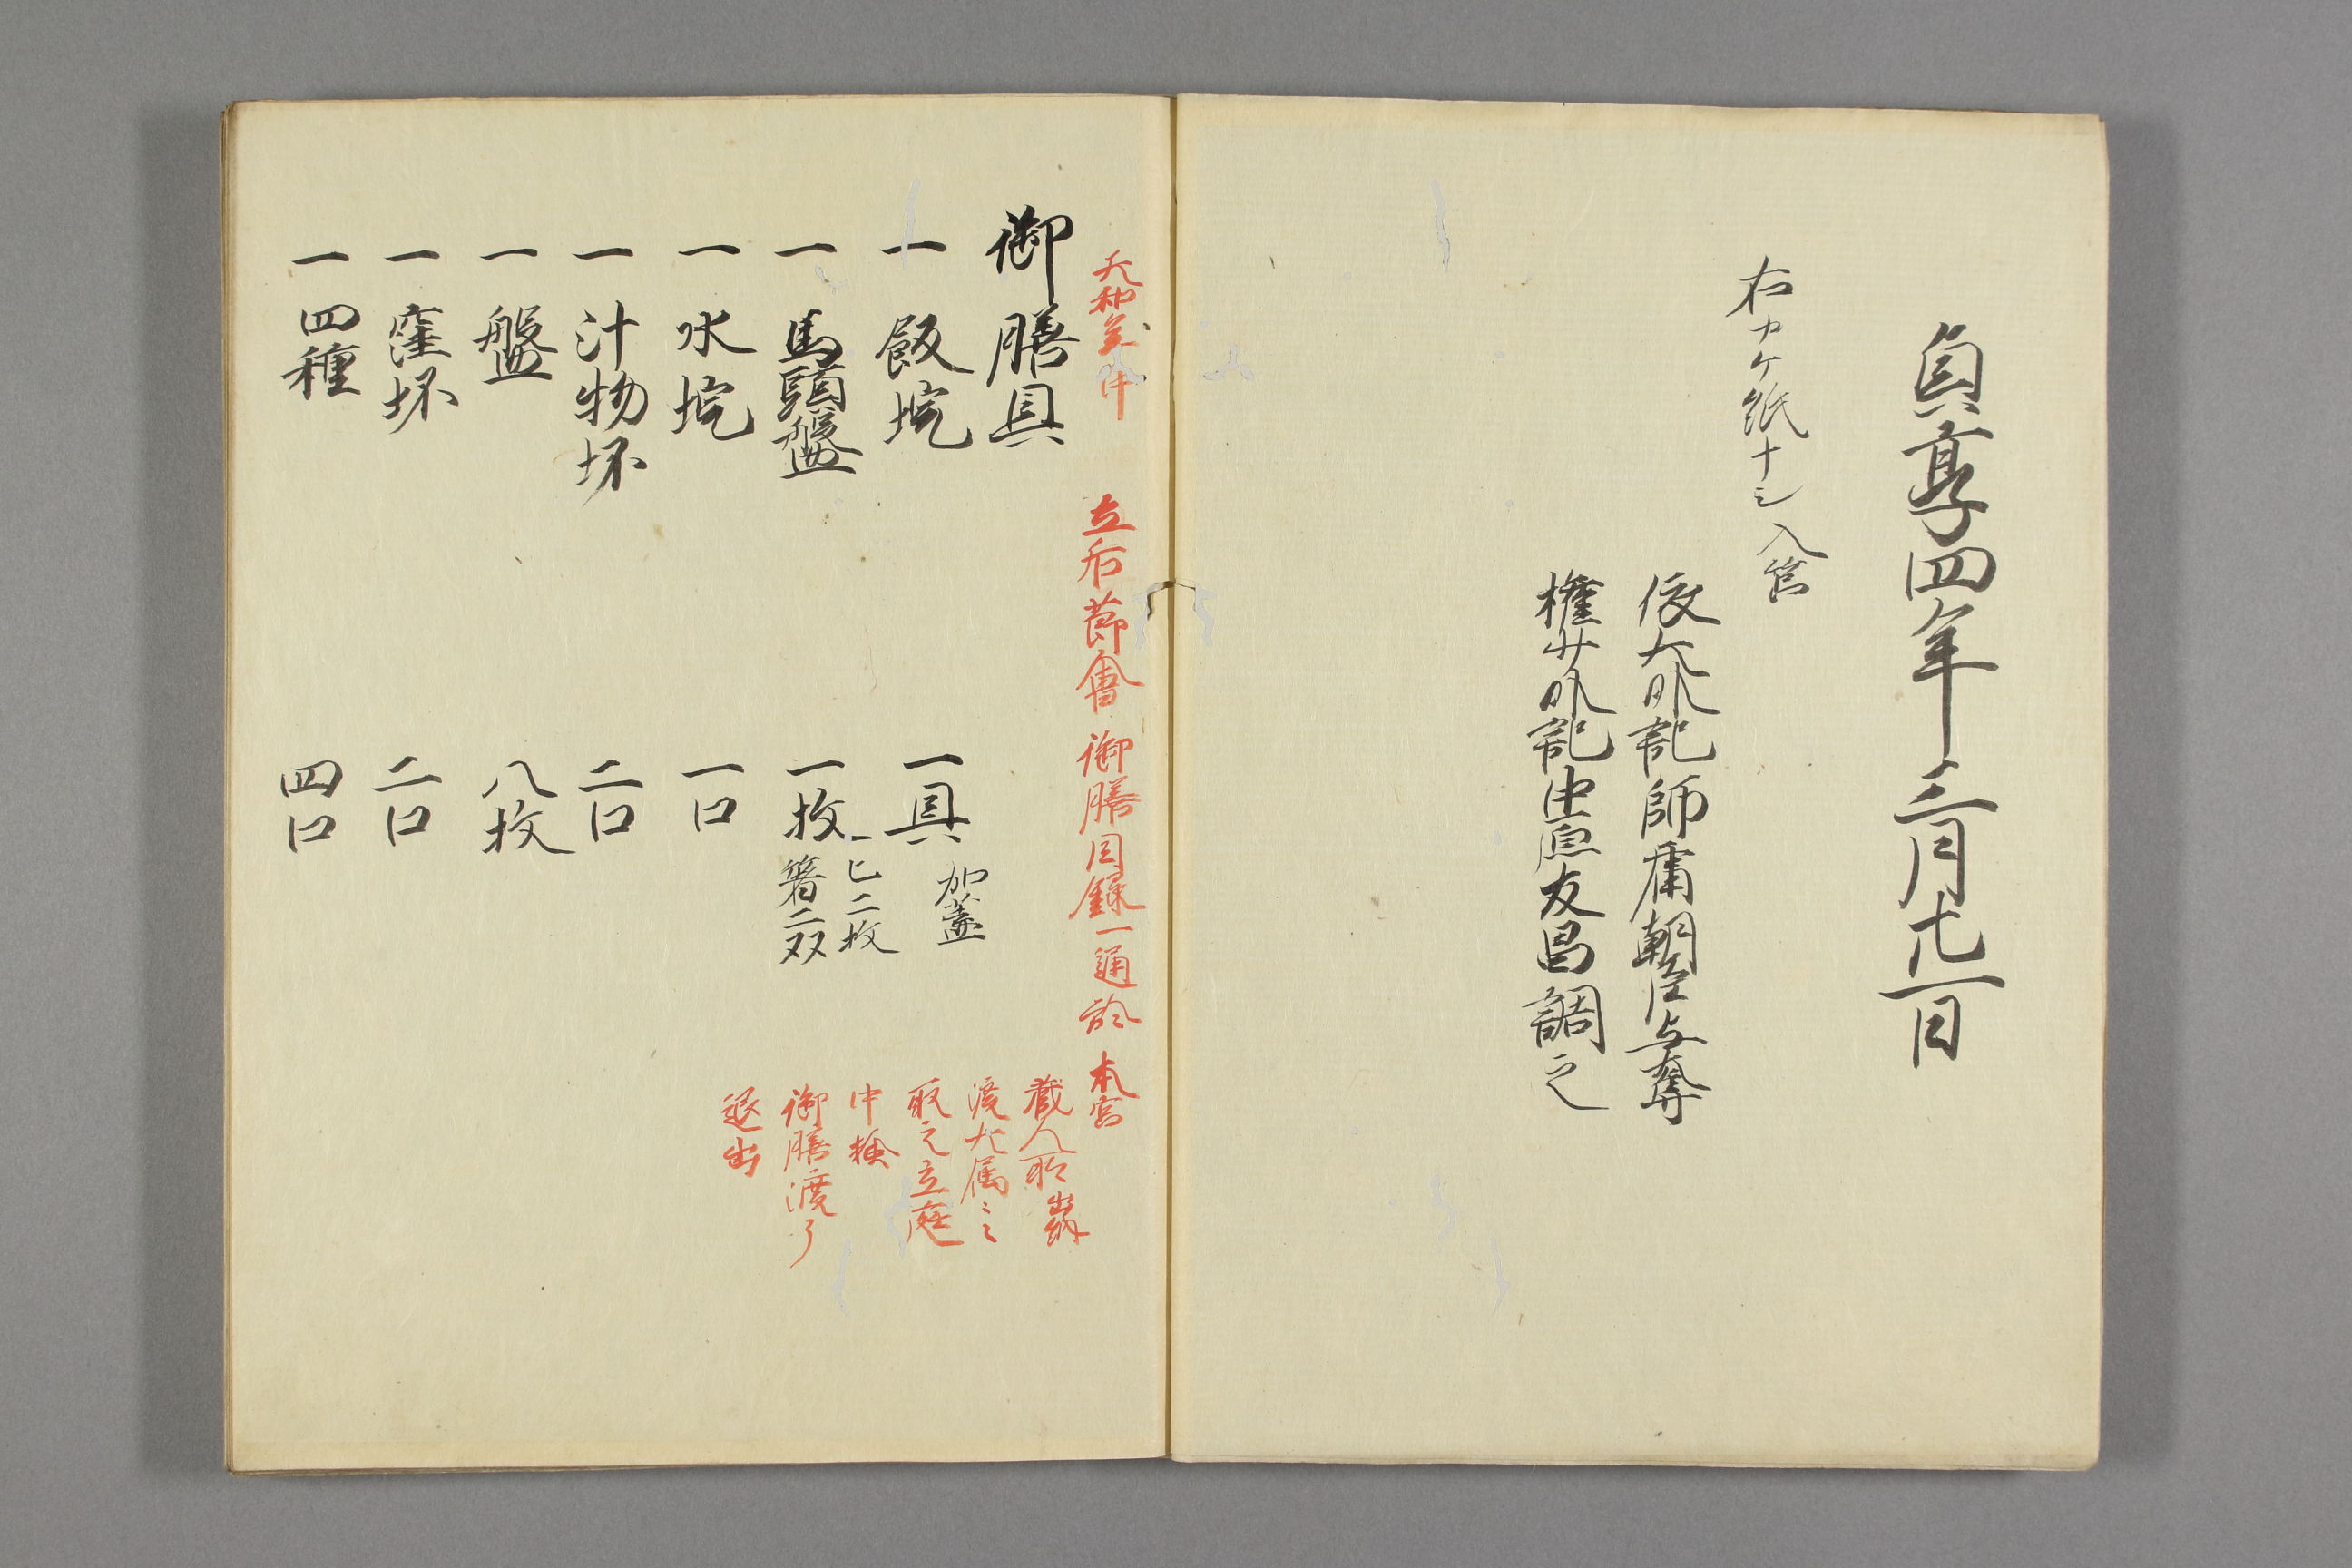 貞享四年三月廿一日
右カケ紙十ミ入筥
依大外記師庸朝臣与奪
権少外記中原友昌調之
天和三 中
立后節會 御膳目録一通 於本宮
蔵人所
渡大属
取之立庭
中検
御膳渡了
退出
御膳具
一 飯埦 一具 加蓋
一 馬頭盤 一枚 匕二枚 箸二双
一 水埦 一口
一 汁物坏 二口
一 盤 八枚
一 窪坏 二口
一 四種 四口